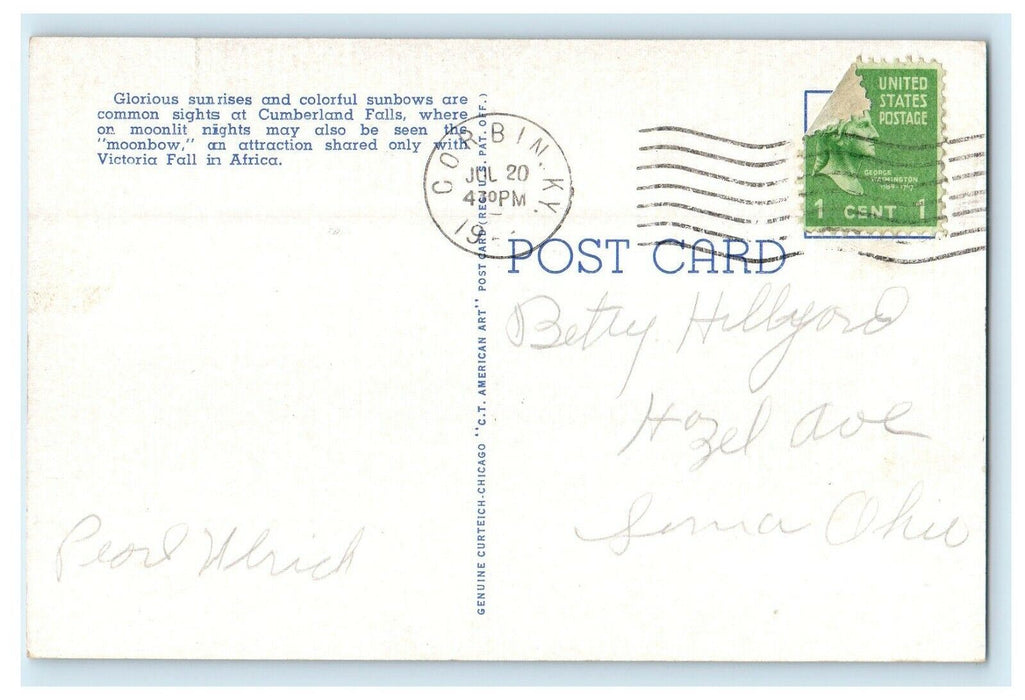 Glorious sunrises and colorful sunbows are
common sights at Cumberland Falls, where
on moonlit nights may also be seen the
"moonbow," an attraction shared only with
Victoria Fall in Africa.
CORBIN, KY.
JUL 20
430PM
UNITED
STATES
POSTAGE
GEORGE
WASHINGTON
1789-1797
1 CENT 1
POST CARD
GENUINE CURTEICH-CHICAGO "C.T. AMERICAN ART" POST CARD (REG. U.S. PAT. OFF.)
Betty
Hazel Ave
Ohio
Pearl Ulrich